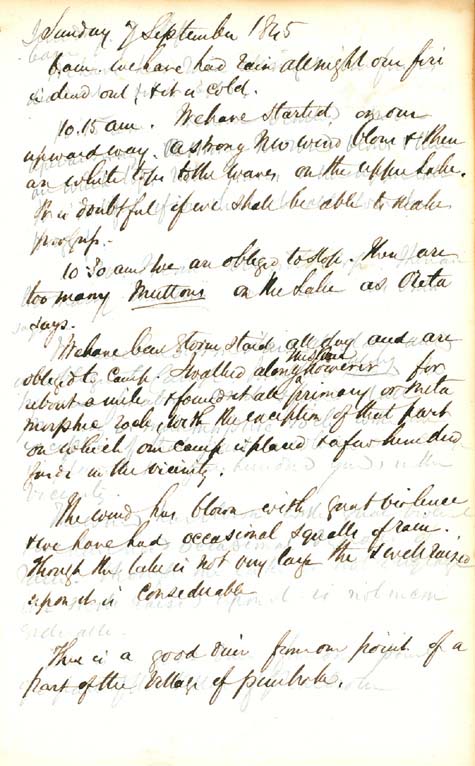 Sunday 7 September 1845
6 am. We have had rain all night our fire
is dead out & it is cold.
10.15 am. We have started on our
upward way. A strong NW wind blows & there
are white tops to the waves on the upper Lake.
It is doubtful if we shall be able to make
progress.
10 30 am We are obliged to stop. There are
too many Muttons on the Lake as Oleta
says.
We have been storm staid all day and are
obliged to camp. I walked along the shore however for
about a mile & found it all primary or meta
morphic rock, with the exception of that part
on which our camp is placed & a few hundred
yards in the vicinity.
The wind has blown with great violence
& we have had occasional squalls of rain.
Though the lake is not very large the swell raised
upon it is considerable
There is a good view from our point of a
part of the village of